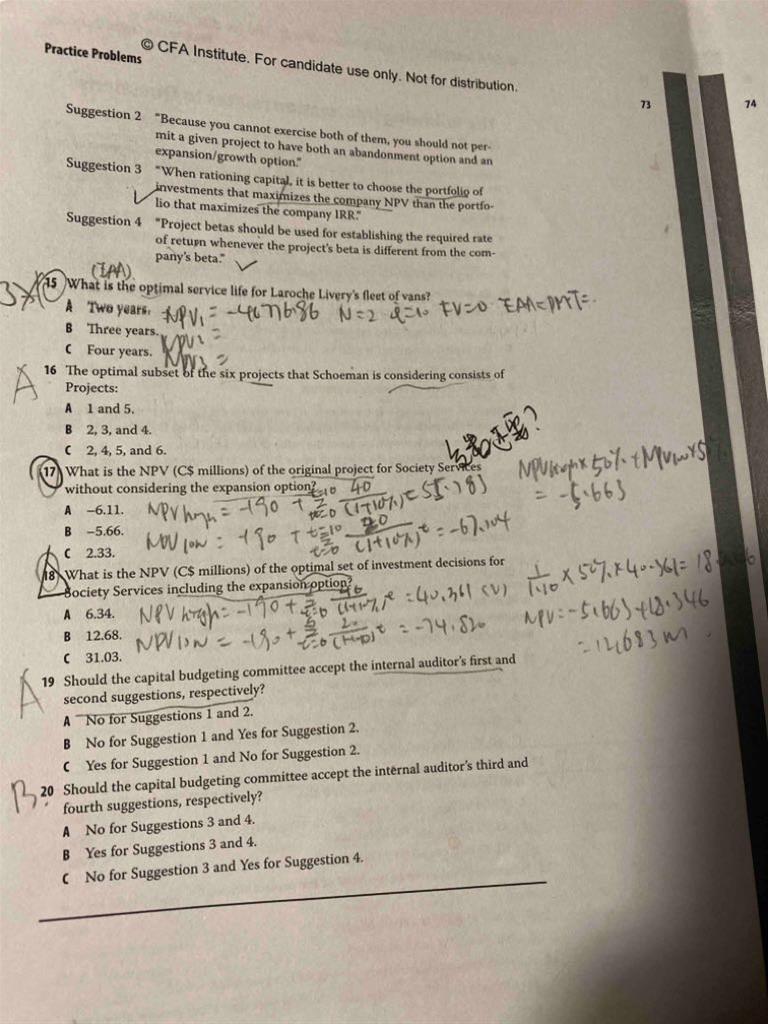 Practice Problems
© CFA Institute. For candidate use only. Not for distribution.
73
74
Suggestion 2 "Because you cannot exercise both of them, you should not per-
mit a given project to have both an abandonment option and an
expansion/growth option."
Suggestion 3 "When rationing capital, it is better to choose the portfolio of
investments that maximizes the company NPV than the portfo-
lio that maximizes the company IRR."
Suggestion 4 "Project betas should be used for establishing the required rate
of return whenever the project's beta is different from the com-
pany's beta."
15 What is the optimal service life for Laroche Livery's fleet of vans?
A Two years. NPV1 = -46776.86 N=2 i=10 FV=0 EAA=PMT=
B Three years. NPV2 =
C Four years. NPV3 =
A 16 The optimal subset of the six projects that Schoeman is considering consists of
Projects:
A 1 and 5.
B 2, 3, and 4.
C 2, 4, 5, and 6.
17 What is the NPV (C$ millions) of the original project for Society Services
without considering the expansion option?
A –6.11. NPV high = -190 + 40 / (1+10%)t = 55.783
B –5.66. NPV low = -190 + 20 / (1+10%)t = -67.104
C 2.33.
NPV high x 50% + NPV low x 50%
= -5.663
18 What is the NPV (C$ millions) of the optimal set of investment decisions for
Society Services including the expansion option?
A 6.34. NPV high = -190 + = 40.361 (V)
B 12.68. NPV low = -190 + = -74.820
C 31.03.
1/1.10 x 50% x 40.361 = 18.346
NPV = -5.663 + 18.346
= 12.683 m
A 19 Should the capital budgeting committee accept the internal auditor's first and
second suggestions, respectively?
A No for Suggestions 1 and 2.
B No for Suggestion 1 and Yes for Suggestion 2.
C Yes for Suggestion 1 and No for Suggestion 2.
B 20 Should the capital budgeting committee accept the internal auditor's third and
fourth suggestions, respectively?
A No for Suggestions 3 and 4.
B Yes for Suggestions 3 and 4.
C No for Suggestion 3 and Yes for Suggestion 4.